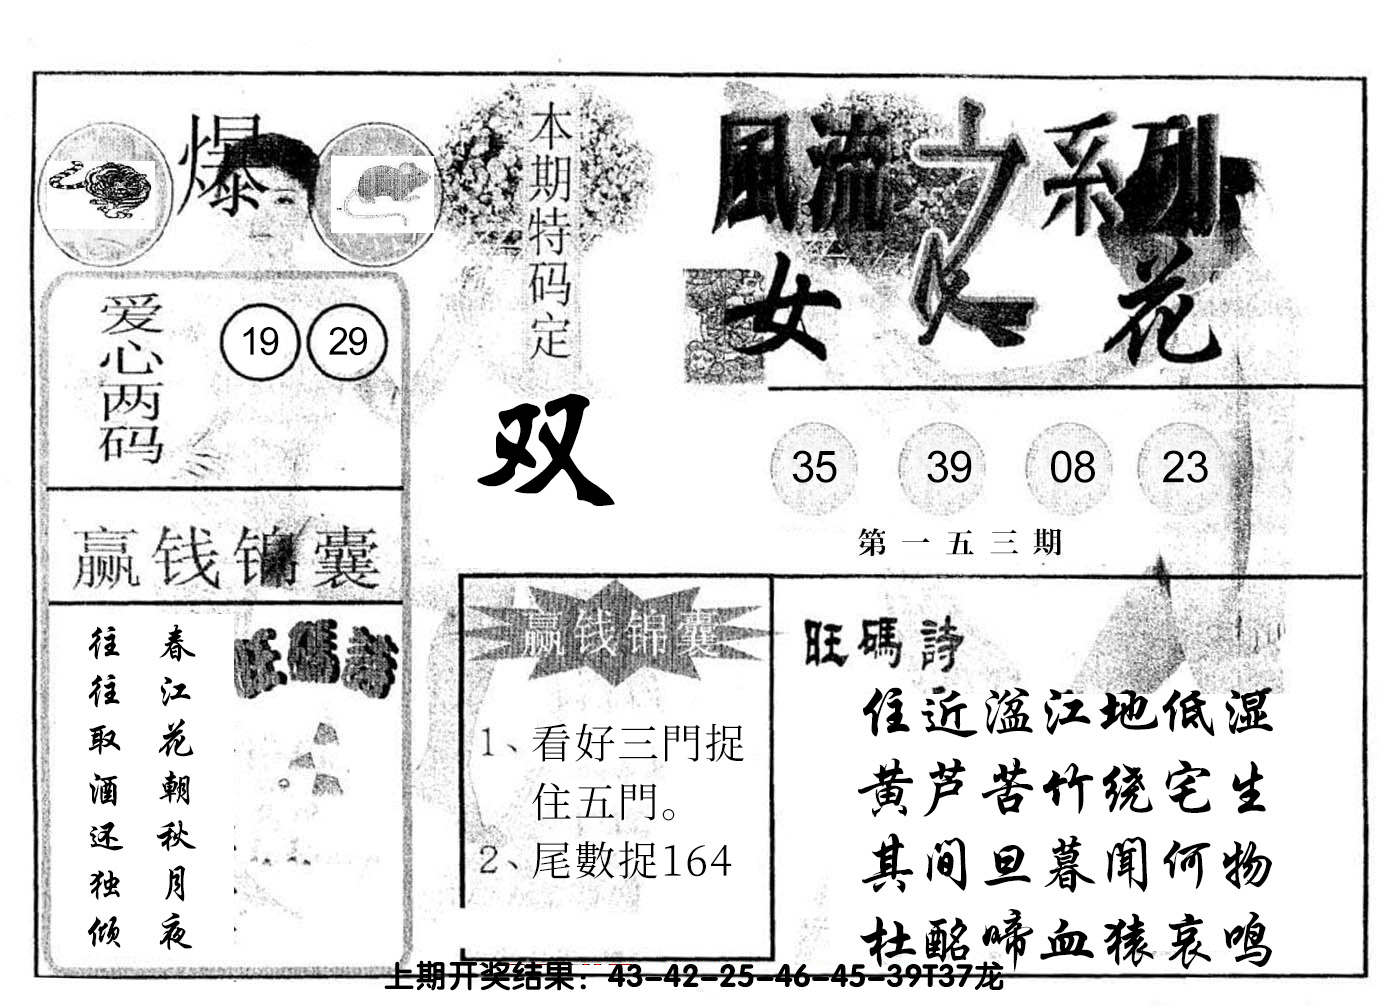 爆
本期特码定
双
爱心两码
19 29
赢钱锦囊
春江花朝秋月夜
往往取酒还独倾
旺碼詩
風流之系列
女人花
35 39 08 23
第一五三期
赢钱锦囊
1、看好三門捉
住五門。
2、尾數捉164
旺碼詩
住近湓江地低湿
黄芦苦竹绕宅生
其间旦暮闻何物
杜酩啼血猿哀鸣
上期开奖结果：43-42-25-46-45-39T37龙